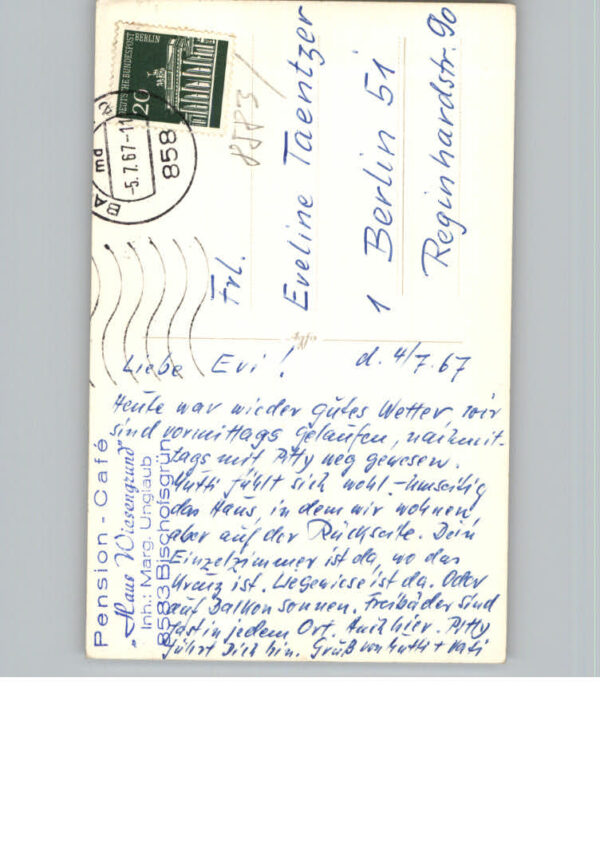 DEUTSCHE BUNDESPOST BERLIN
20
-5.7.67-11
858
8583
Frl.
Eveline Taentzer
1 Berlin 51
Reginhardstr. 90
Liebe Evi! d. 4/7.67
Heute war wieder gutes Wetter, wir
sind vormittags gelaufen, nachmit-
tags mit Pitty weg gewesen.
Mutti fühlt sich wohl – Umseitig
das Haus, in dem wir wohnen,
aber auf der Rückseite. Dein
Einzelzimmer ist da, wo das
Kreuz ist. Liegewiese ist da. Oder
auf Balkon sonnen. Freibäder sind
fast in jedem Ort. Auch hier. Pitty
führt Dich hin. Gruß von Mutti + Vati
Pension - Café
„Haus Wiesengrund"
Inh.: Marg. Unglaub
8583 Bischofsgrün